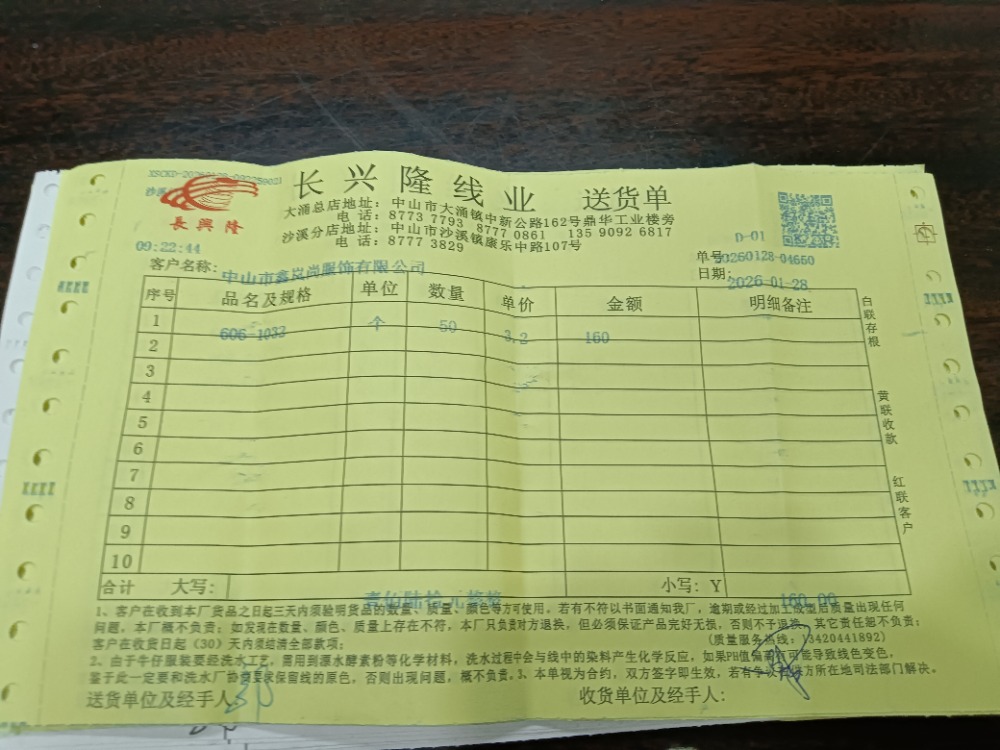 长兴隆线业 送货单
長興隆
大涌总店地址：中山市大涌镇中新公路162号鼎华工业楼旁
电话：8773 7793 8777 0861 135 9092 6817
沙溪分店地址：中山市沙溪镇康乐中路107号
电话：8777 3829
09:22:44
D-01
单号 20260128-04660
客户名称：中山市鑫岚尚服饰有限公司
日期：2026-01-28
序号 品名及规格 单位 数量 单价 金额 明细备注
1 606-1033 个 50 3.2 160
2
3
4
5
6
7
8
9
10
白联存根
黄联收款
红联客户
合计 大写：壹佰陆拾元整 小写：Y 160.00
1、客户在收到本厂货品之日起三天内须验明货品的数量、质量、颜色等方可使用，若有不符以书面通知我厂，逾期或经过加工成型后质量出现任何
问题，本厂概不负责；如发现在数量、颜色、质量上存在不符，本厂只负责对方退换，但必须保证产品完好无损，否则不予退换，其它责任恕不负责；
客户在收货日起（30）天内须结清全部款项；
（质量服务热线：13420441892）
2、由于牛仔服装要经洗水工艺，需用到漂水酵素粉等化学材料，洗水过程中会与线中的染料产生化学反应，如果PH值偏高有可能导致线色变色，
鉴于此一定要和洗水厂协商要求保留线的原色，否则出现问题，概不负责。3、本单视为合约，双方签字即生效，若有争议 方所在地司法部门解决。
送货单位及经手人：
收货单位及经手人：